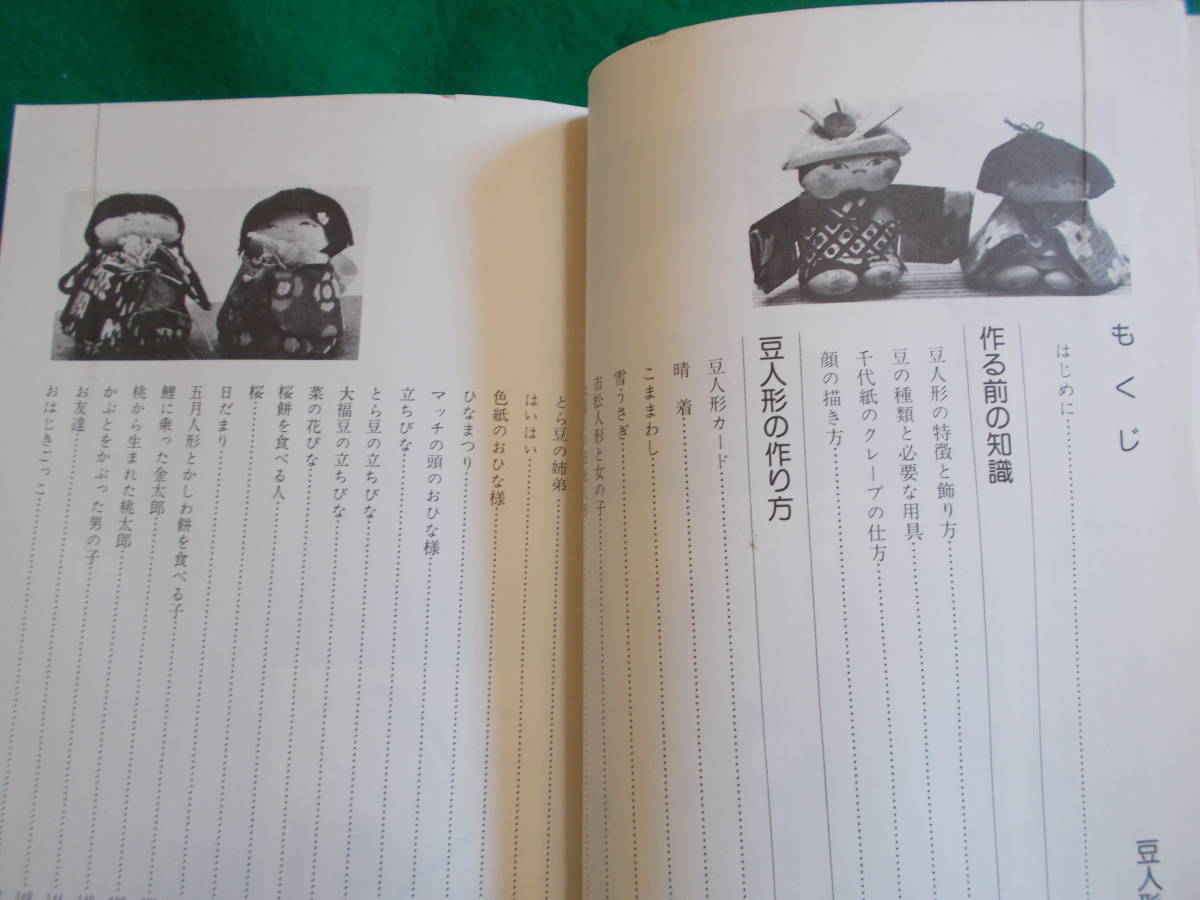 もくじ
はじめに
作る前の知識
豆人形の特徴と飾り方
豆の種類と必要な用具
千代紙のクレープの仕方
顔の描き方
豆人形の作り方
豆人形カード
晴着
こままわし
雪うさぎ
市松人形と女の子
とら豆の姉弟
はいはい
色紙のおひな様
ひなまつり
マッチの頭のおひな様
立ちびな
とら豆の立ちびな
大福豆の立ちびな
菜の花びな
桜餅を食べる人
桜
日だまり
五月人形とかしわ餅を食べる子
鯉に乗った金太郎
桃から生まれた桃太郎
かぶとをかぶった男の子
お友達
おはじきごっこ
豆人形